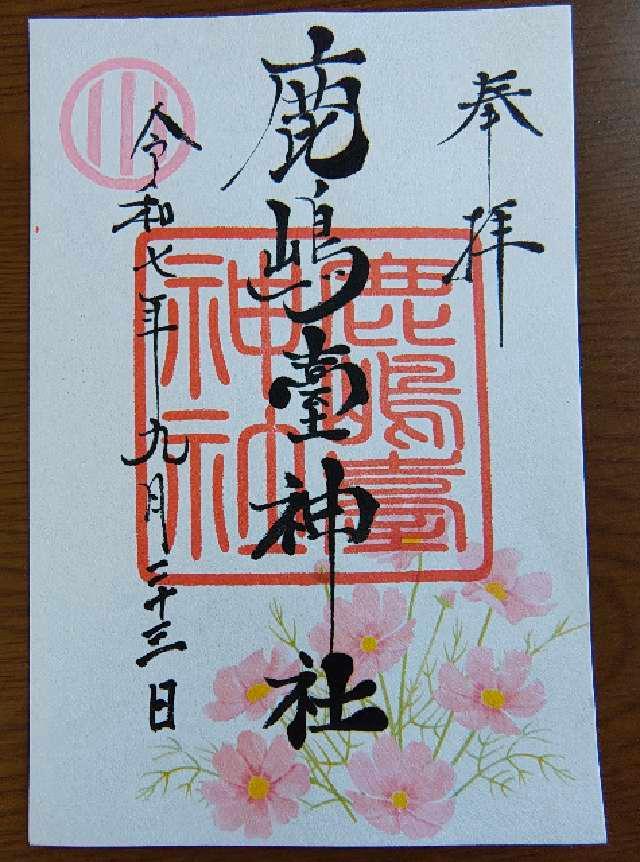 奉拝
鹿嶋臺神社
鹿嶋臺神社
令和七年九月二十三日